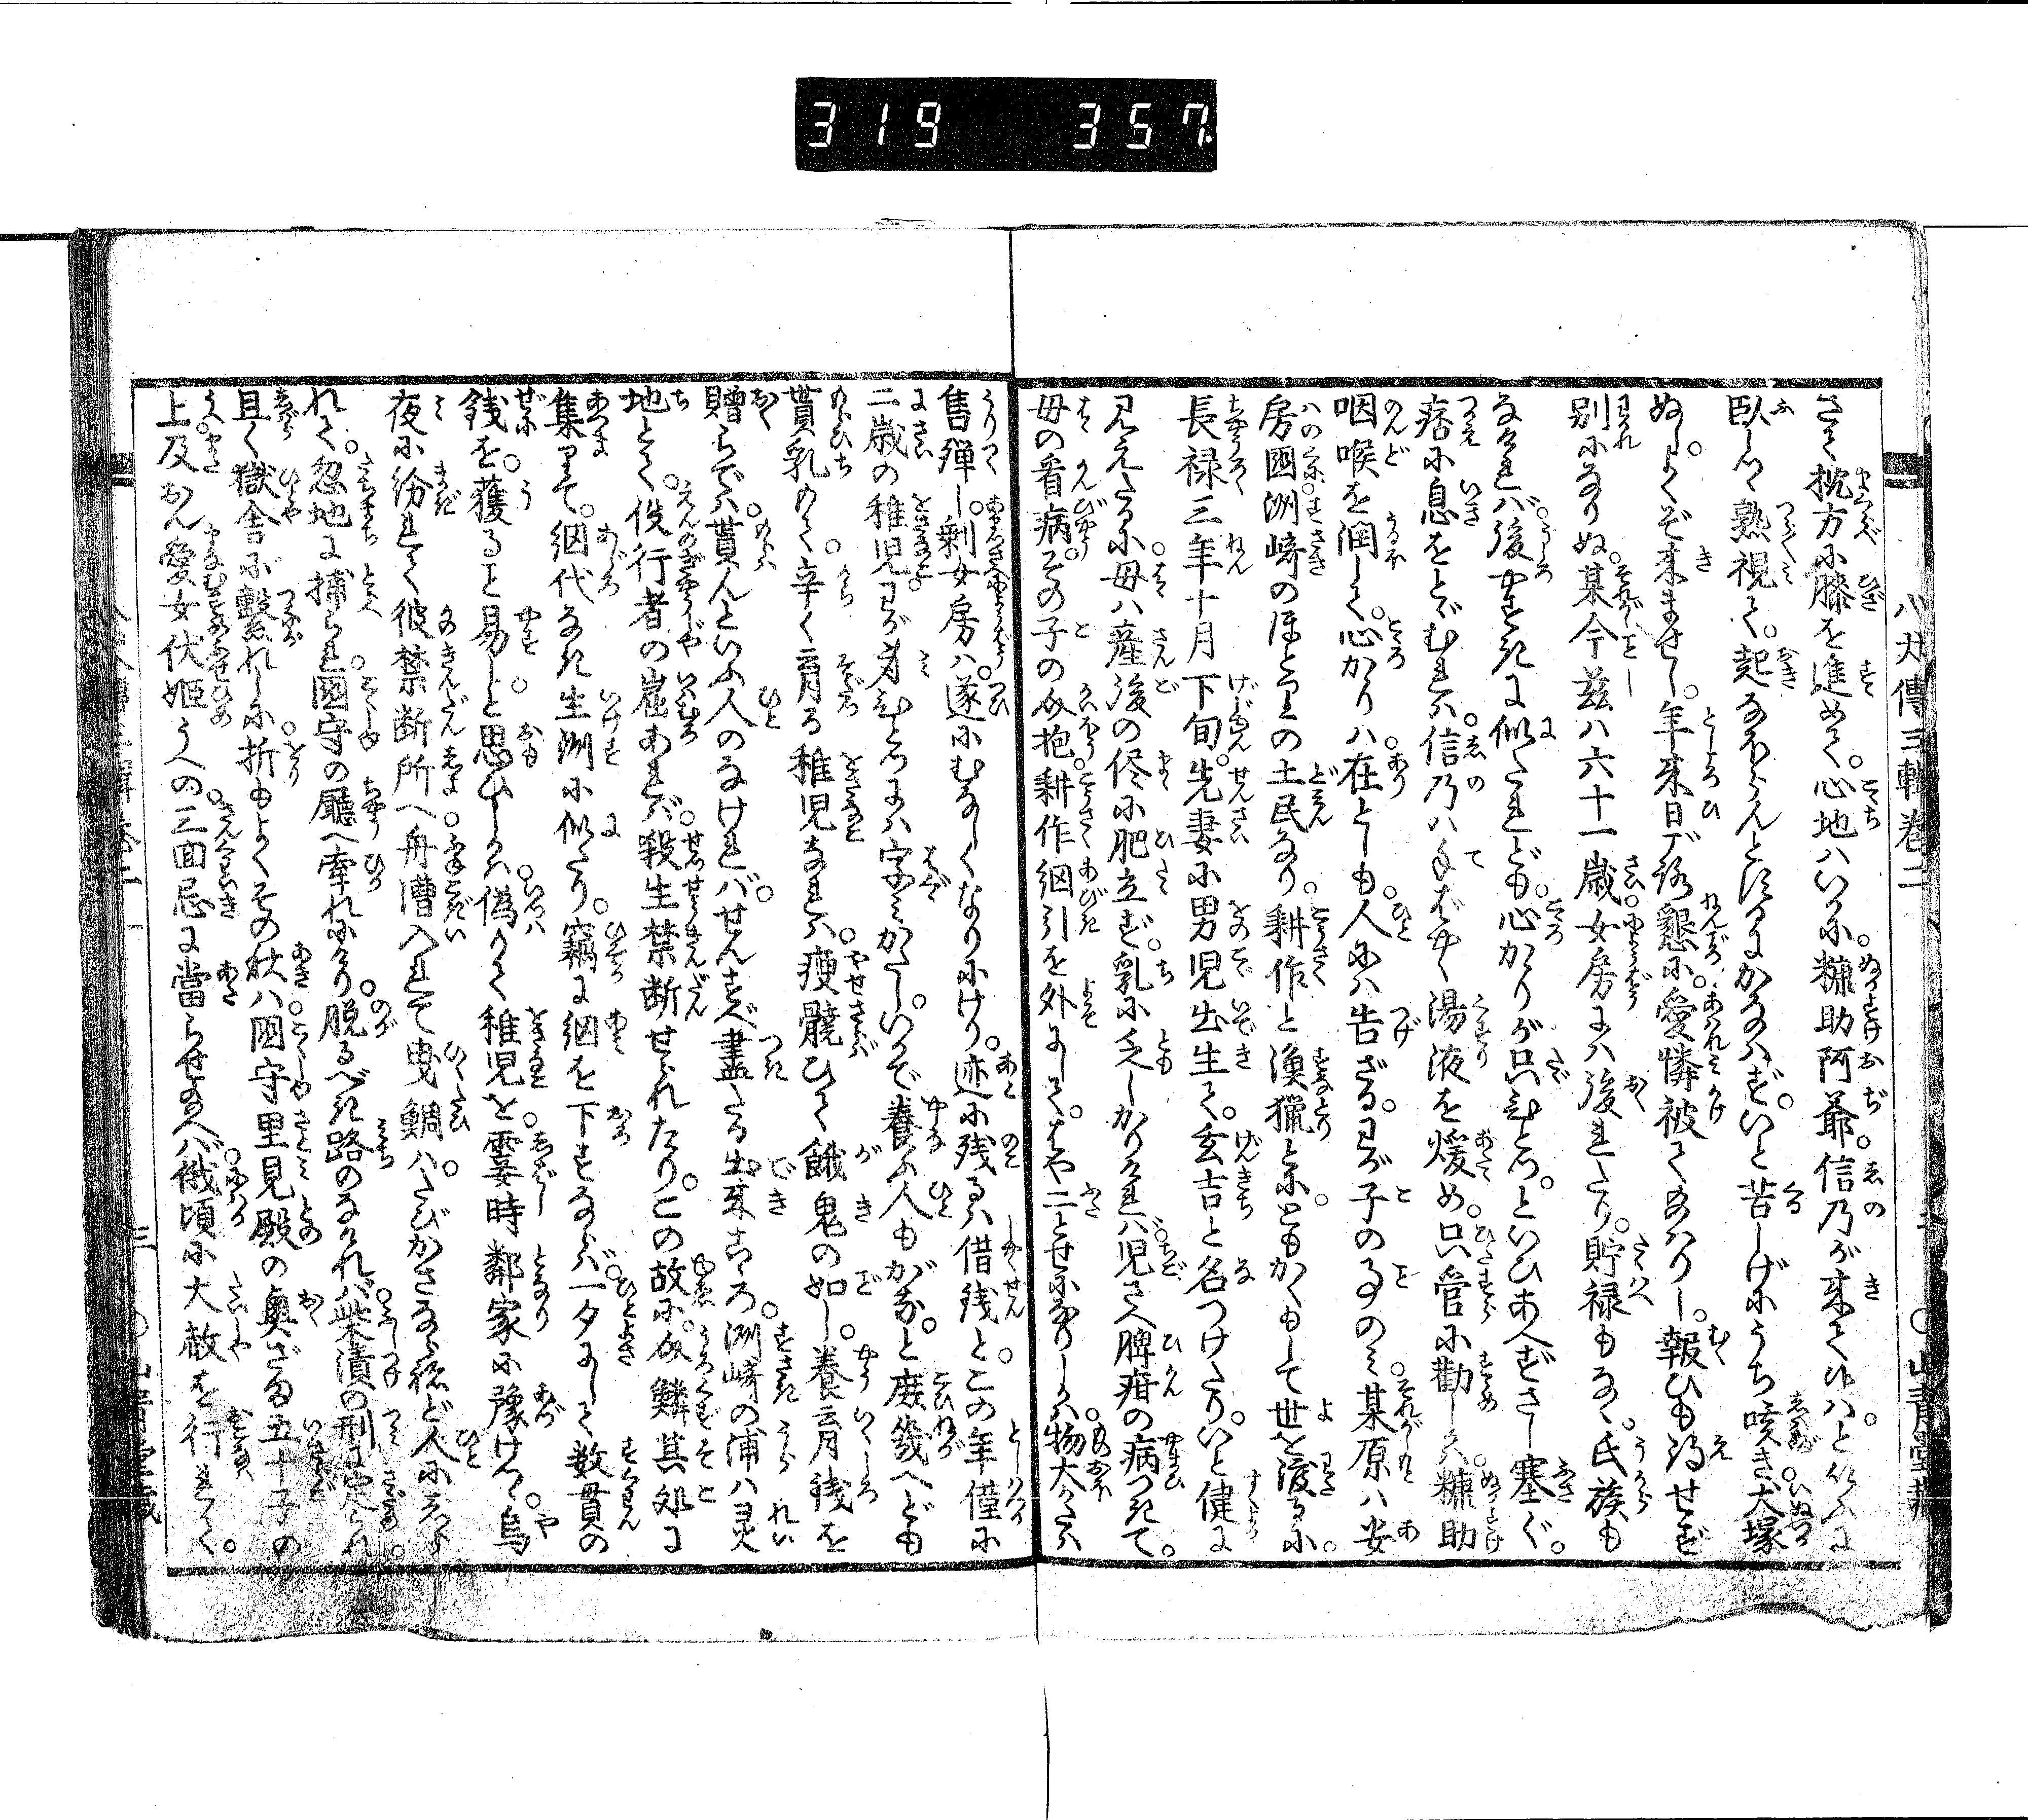 319 357
八犬傳三輯巻二
○山青堂藏
さて枕方に膝を進めて。心地はいかに。糠助阿爺。信乃が来て候は。といふに
臥しつゝ熟視て。起なほらんとするにかなはず。いと苦しげにうち咳き犬塚
ぬし。よくぞ来ませし。年来日ごろ懇に。愛憐被て給はりし。報ひも得せで
別になりぬ。某今茲は六十一歳女房には後れたり。貯禄もなく。氏族も
なければ後やすきに似たれども。心がかりが只ひとつ。といひあへずさし塞ぐ。
痞に息をとゞむれば。信乃は手ばやく湯液を煖め。只管に勸しかば。糠助
咽喉を潤して。心かゝりは。在としも。人には告ざる。わが子の事のみ。某原は安
房國洲崎のほとりの土民なり。耕作と漁獵とに。ともかくもして世を渡るに。
長禄三年十月下旬。先妻に男児出生て。玄吉と名つけたり。いと健に
見えたるに。母は産後の侭に肥立ず。乳に乏しかりければ。児さへ脾疳の病つきて。
母の看病。その子の介抱。耕作網引を外にして。はや二とせになりしかば。物大かたは
售殫し。剰女房は。遂にむなしくなりにけり。迹に残るは借銭と。この年僅に
二歳の稚児。わが身ひとつには字みがたし。いかで養ふ人もがな。と庶幾へども
貰乳めて。辛く育る稚児なれば。痩髐ひて餓鬼の如し。養育銭を
贈らでは。貰んといふ人のなければ。せんすべ盡たる出来ごゝろ。洲崎の浦は灵
地とて。役行者の嵓あれば。殺生禁断せられたり。この故に。介鱗其処に
集りて。網代なき生洲に似たり。竊に網を下すならば。一夕にして数貫の
銭を。獲ること易しと思ひしかば。偽りて稚児を。霎時鄰家に豫けつゝ。烏
夜に紛れて彼禁断所へ舟漕入れて曳鯛は。たびかさならねど人にしら
れて。忽地に捕られ。國守の廳へ牽れにけり。脱るべき路のなければ。柴漬の刑に定られ
且く獄舎に繋れしに。折もよくその秋は。國守里見殿の奥ざま五十子の
上。及おん愛女伏姫うへの。三回忌に當らせ給へば。俄頃に大赦を行れて。
三